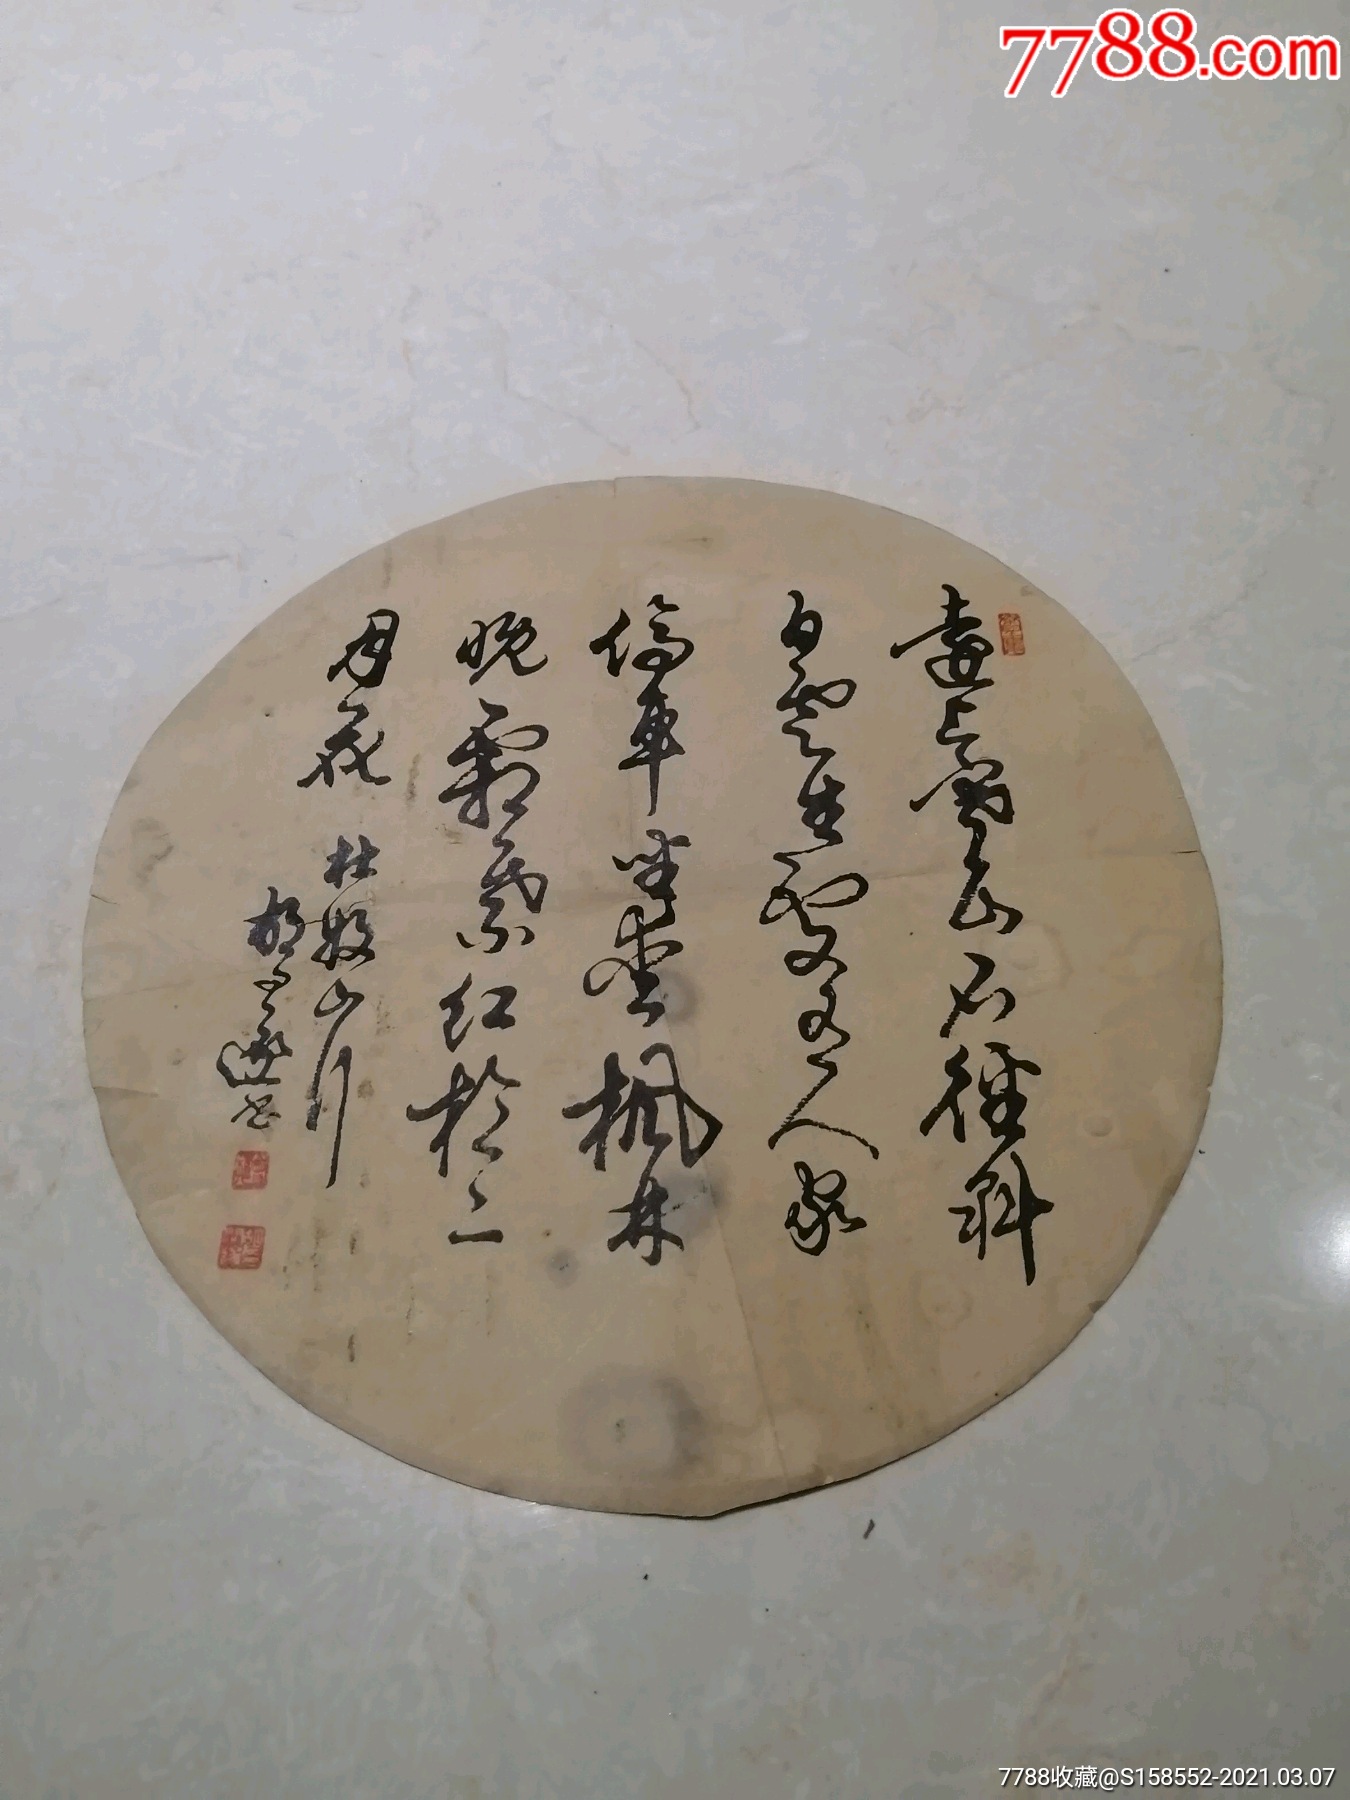 7788.com
遠上寒山石徑斜
白雲生處有人家
停車坐愛楓林
晚霜葉紅於二
月花 杜牧山行
胡 书
7788收藏@S158552-2021.03.07